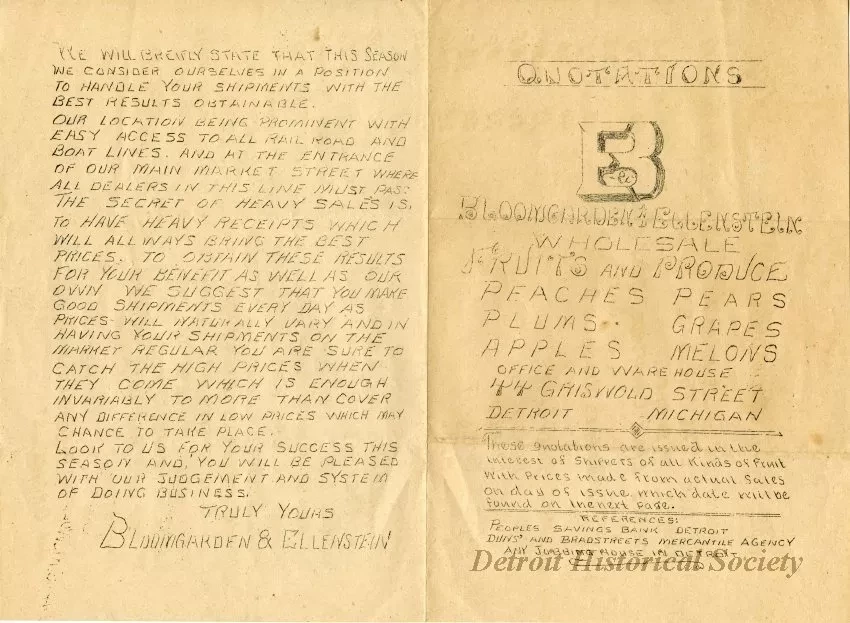 WE WILL BREIFLY STATE THAT THIS SEASON
WE CONSIDER OURSELVES IN A POSITION
TO HANDLE YOUR SHIPMENTS WITH THE
BEST RESULTS OBTAINABLE.
OUR LOCATION BEING PROMINENT WITH
EASY ACCESS TO ALL RAIL ROAD AND
BOAT LINES. AND AT THE ENTRANCE
OF OUR MAIN MARKET STREET WHERE
ALL DEALERS IN THIS LINE MUST PASS
THE SECRET OF HEAVY SALES IS,
TO HAVE HEAVY RECEIPTS WHICH
WILL ALLWAYS BRING THE BEST
PRICES. TO OBTAIN THESE RESULTS
FOR YOUR BENEFIT AS WELL AS OUR
OWN WE SUGGEST THAT YOU MAKE
GOOD SHIPMENTS EVERY DAY AS
PRICES WILL NATURALLY VARY AND IN
HAVING YOUR SHIPMENTS ON THE
MARKET REGULAR YOU ARE SURE TO
CATCH THE HIGH PRICES WHEN
THEY COME WHICH IS ENOUGH
INVARIABLY TO MORE THAN COVER
ANY DIFFERENCE IN LOW PRICES WHICH MAY
CHANCE TO TAKE PLACE.
LOOK TO US FOR YOUR SUCCESS THIS
SEASON AND, YOU WILL BE PLEASED
WITH OUR JUDGEMENT AND SYSTEM
OF DOING BUSINESS.
TRULY YOURS
BLOOMGARDEN & ELLENSTEIN
QUOTATIONS
B & E
BLOOMGARDEN & ELLENSTEIN
WHOLESALE
FRUITS AND PRODUCE
PEACHES PEARS
PLUMS GRAPES
APPLES MELONS
OFFICE AND WAREHOUSE
44 GRISWOLD STREET
DETROIT MICHIGAN
These quotations are issued in the
interest of Shippers of all Kinds of Fruit
with Prices made from actual Sales
on day of issue which date will be
found on the next Page.
REFERENCES:
PEOPLES SAVINGS BANK DETROIT
DUNS' AND BRADSTREETS MERCANTILE AGENCY
ANY JOBBING HOUSE IN DETROIT
Detroit Historical Society